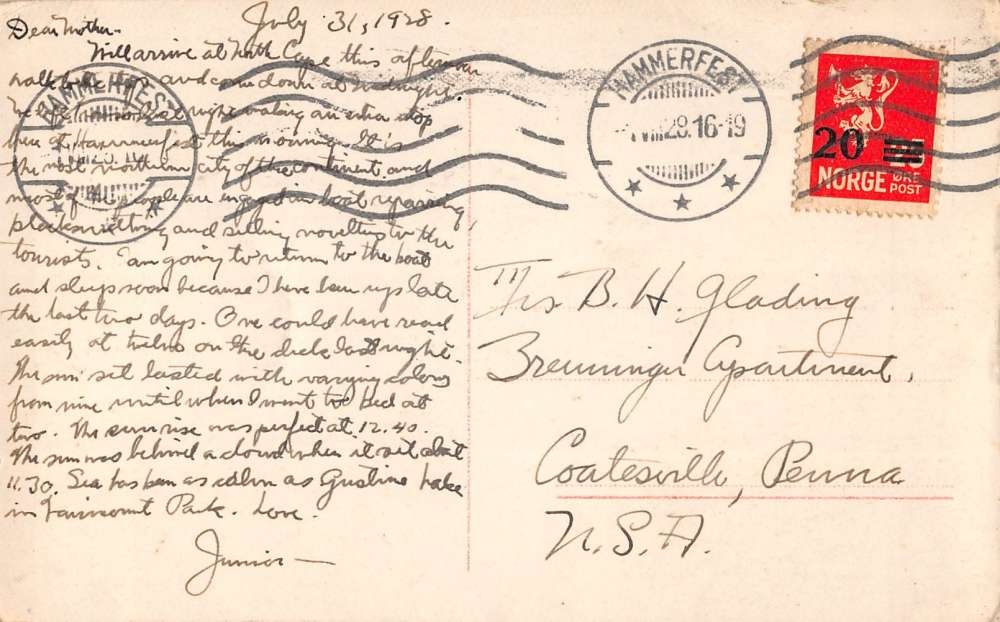 July 31, 1928.
Dear Mother-
Will arrive at North Cape this afternoon
walk and come down at midnight.
We making an extra stop
here at Hammerfest this morning. It is
the most northern city of the continent and
most of the people are engaged in boat repairing,
and selling novelties to the
tourists. I am going to return to the boat
and sleep soon because I have been up late
the last two days. One could have read
easily at twelve on the deck last night.
The sun set lasted with varying colors
from nine until when I went to bed at
two. The sunrise was perfect at 12.40.
The sun was behind a cloud when it set about
11.30. Sea has been as calm as Gustine Lake
in Fairmount Park. Love.
Junior—
HAMMERFEST
HAMMERFEST
VIII 28.16-19
20
NORGE
ØRE
POST
Mrs B. H. Glading
Brenninger Apartment,
Coatesville, Penna
U.S.A.